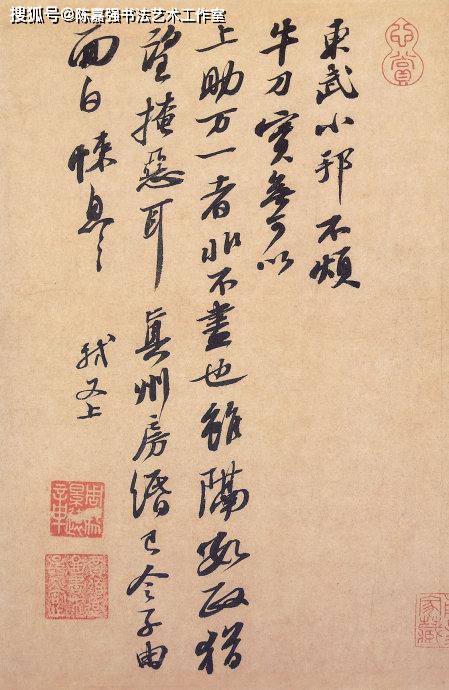 搜狐号@陈嘉强书法艺术工作室
東武小邦不煩
牛刀實無可以
上助万一者非不盡也雖隔數政猶
望掩惡耳 真州房緡已令子由
面白悚息々
軾又上